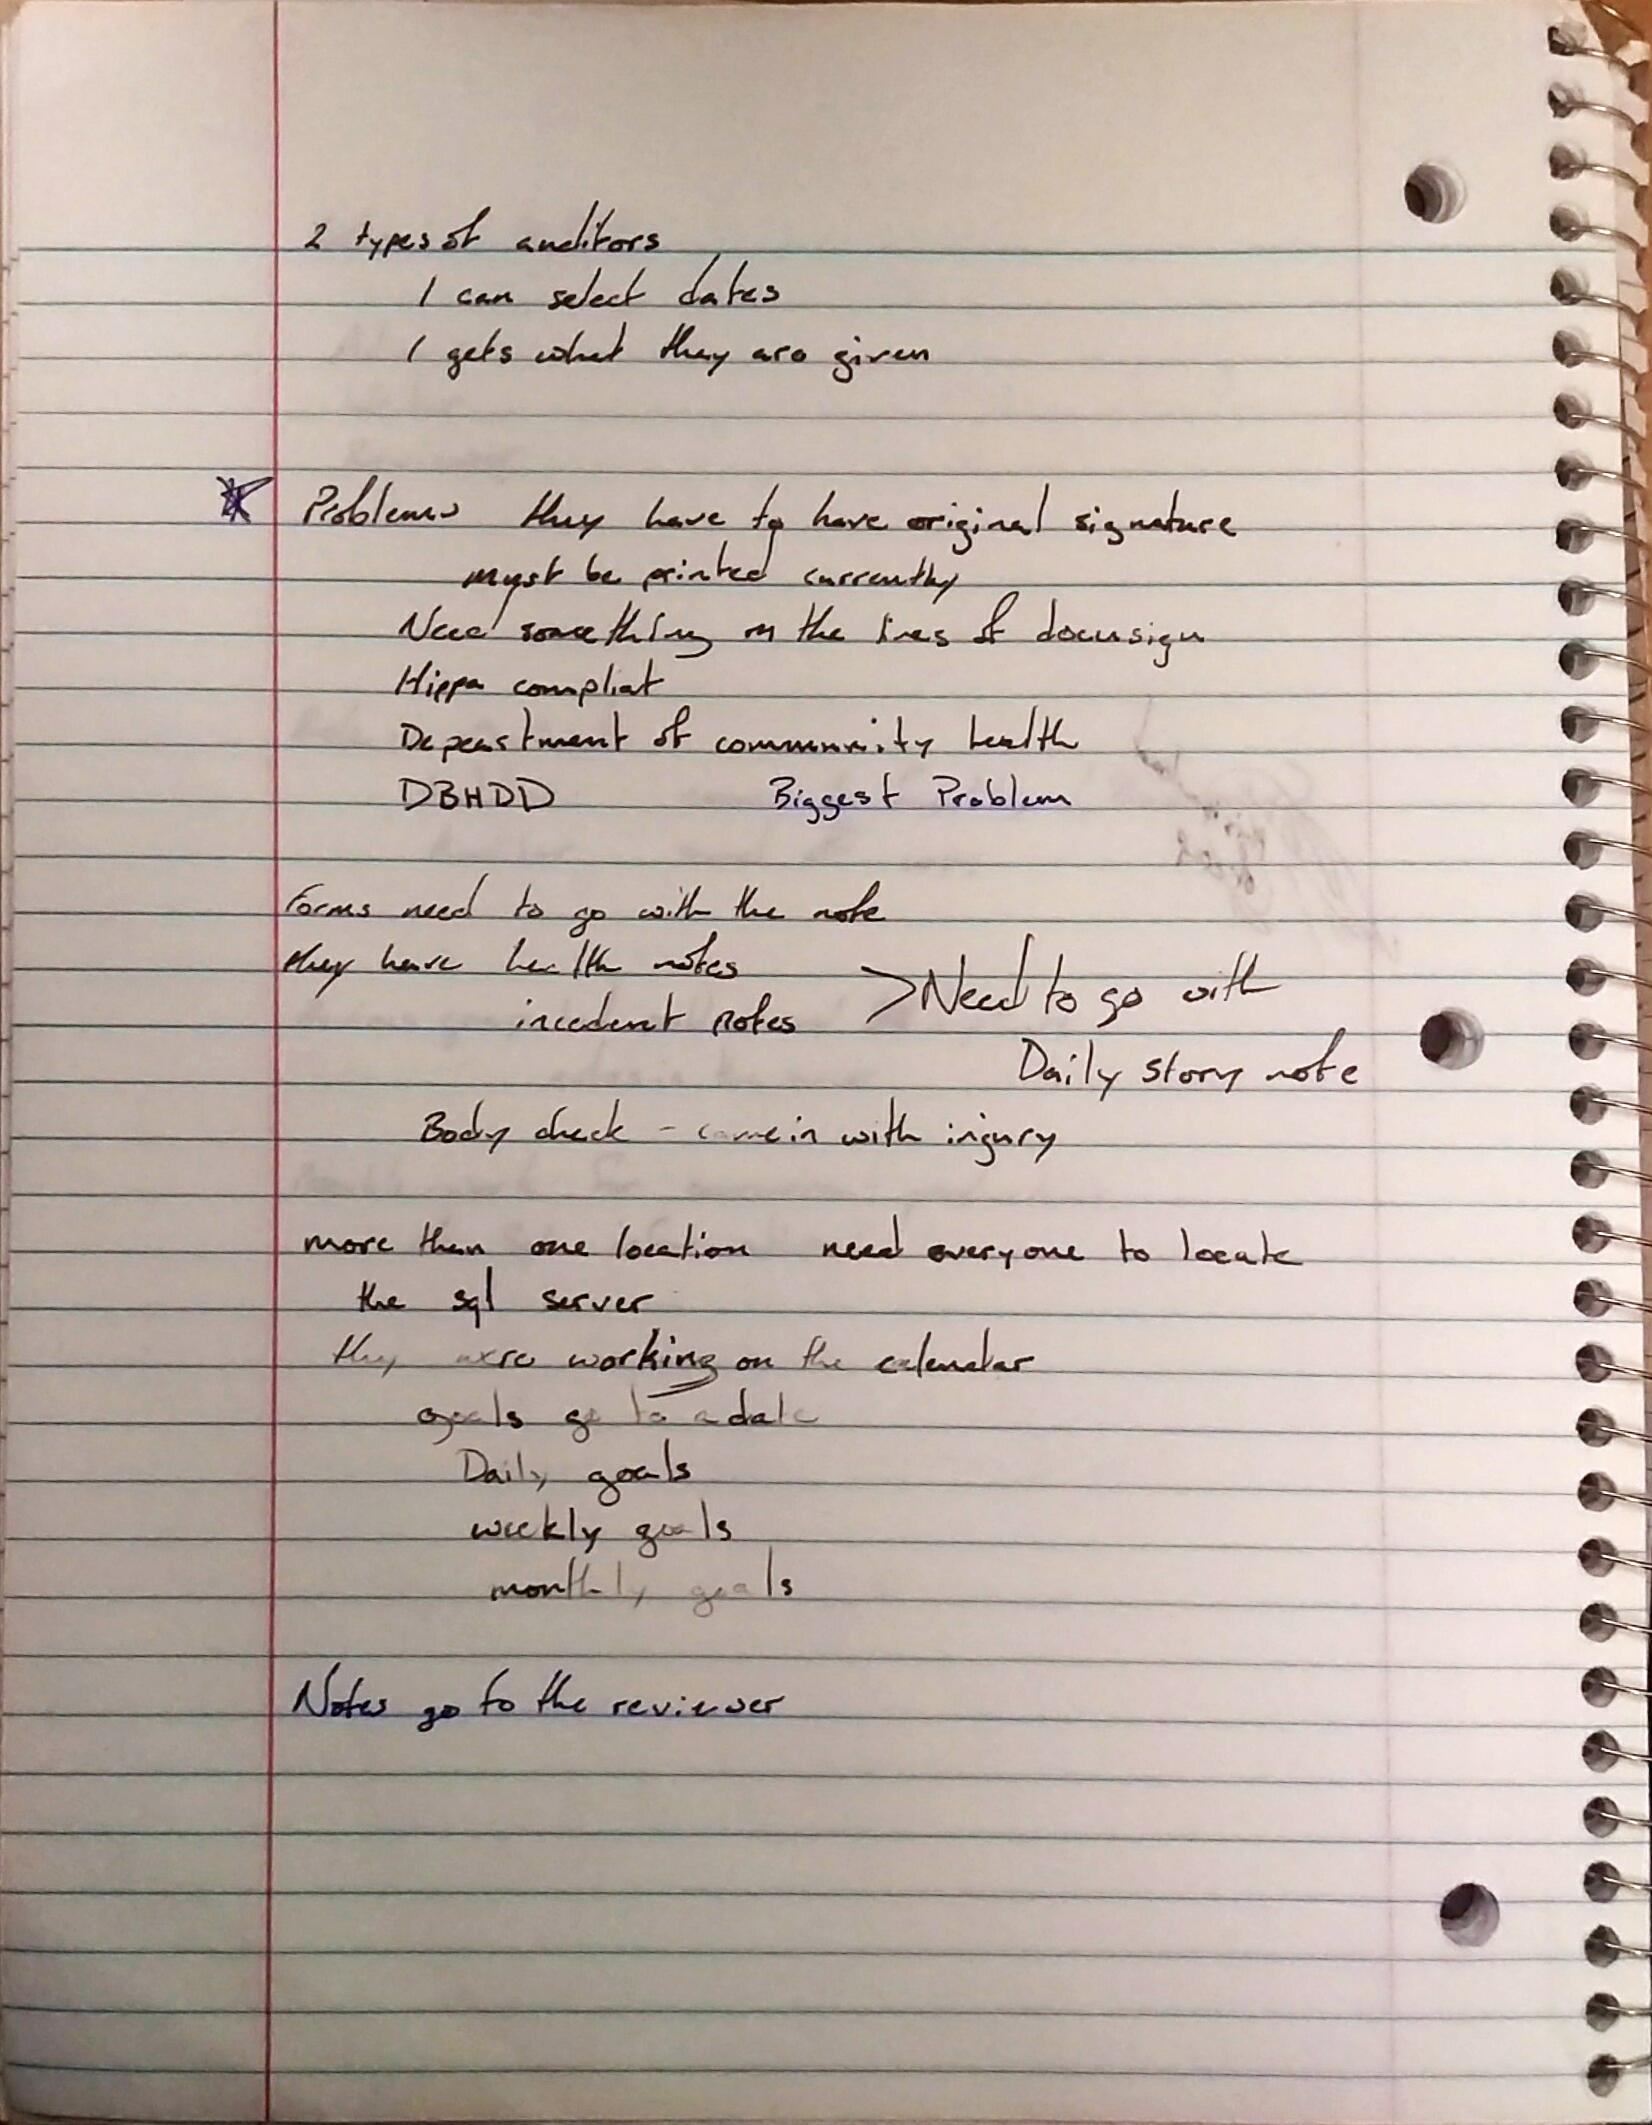 2 types of auditors
1 can select dates
1 gets what they are given
Problems they have to have original signature
must be printed currently
Need something on the lines of docusign
Hippa compliat
Department of community health
DBHDD Biggest Problem
Forms need to go with the note
they have health notes
incedent notes >Need to go with
Daily story note
Body check - came in with injury
more than one location need everyone to locate
the sql server
they were working on the calendar
goals go to a date
Daily goals
weekly goals
monthly goals
Notes go to the reviewer